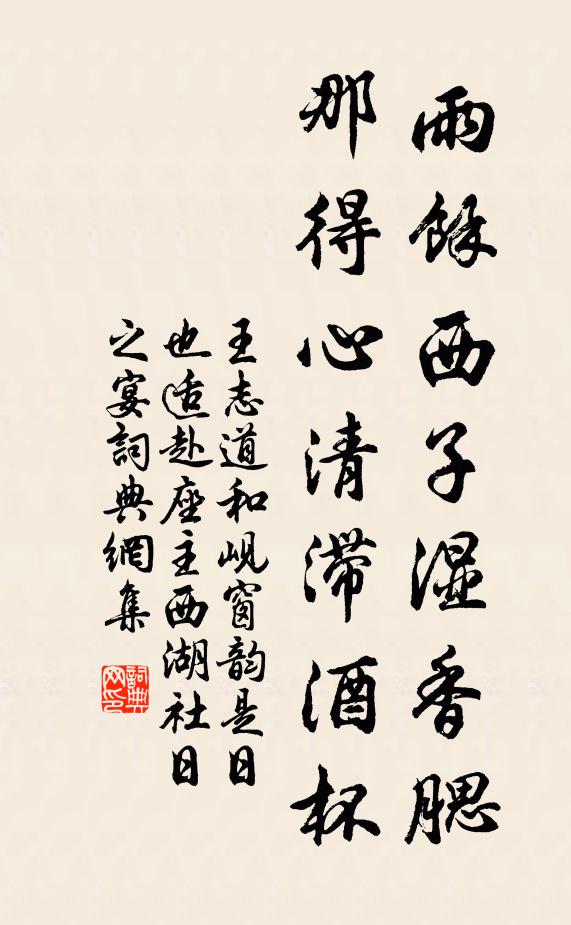 雨餘西子湿香腮
那得心清滯酒杯
王志道和峴窗韵是日
也适赴座主西湖社日
之宴詞典網集
詞典网印